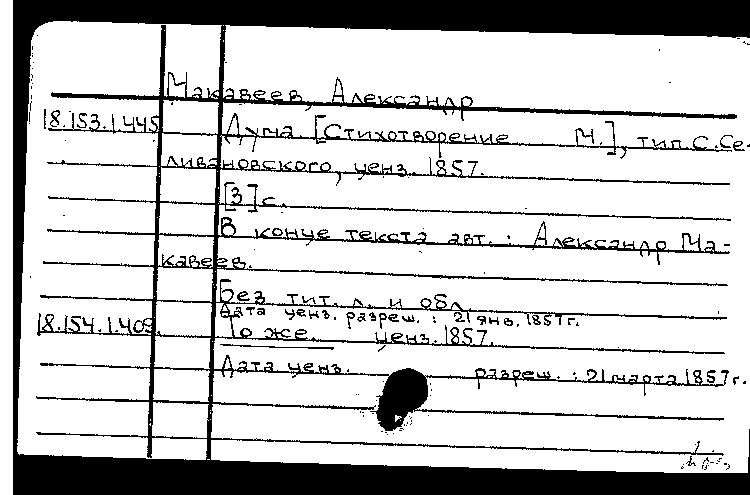 Макавеев, Александр
18.153.1.445 Дума. [Стихотворение М.], тип. С. Се-
ливановского, ценз. 1857.
[3] с.
В конце текста авт. : Александр Ма-
кавеев.
Без тит. л. и обл.
Дата ценз. разреш. : 21 янв. 1857 г.
18.154.1.409. То же. ценз. 1857.
Дата ценз. разреш. : 21 марта 1857 г.